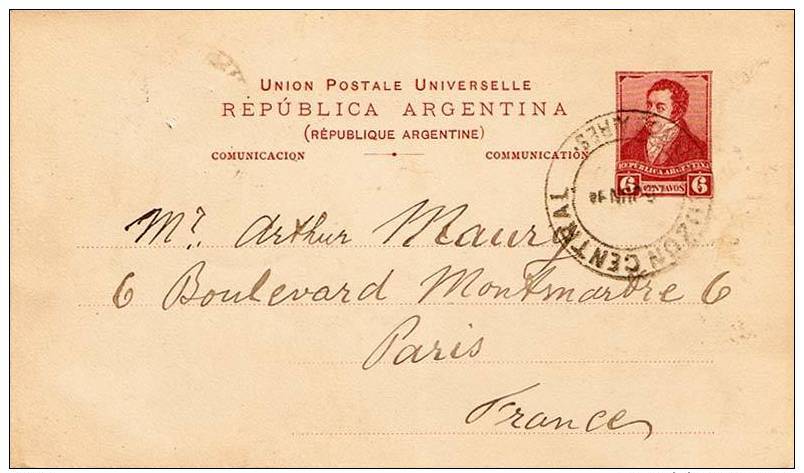 UNION POSTALE UNIVERSELLE
REPÚBLICA ARGENTINA
(RÉPUBLIQUE ARGENTINE)
COMUNICACION COMMUNICATION
REPÚBLICA ARGENTINA
6 CENTAVOS 6
BUZON CENTRAL
Mr. Arthur Maury
6 Boulevard Montmartre 6
Paris
France